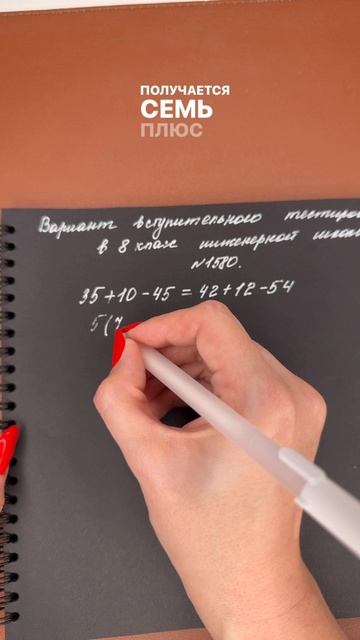 ПОЛУЧАЕТСЯ
СЕМЬ
ПЛЮС
Вариант вступительного тестиро
в 8 класс инженерной школы
№1580.
35+10-45=42+12-54
5(7